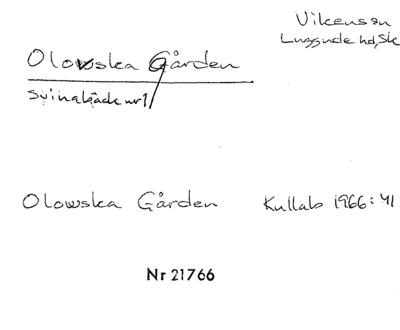 Vikensson
Luggude hd, Sk
Olowska Gården
Svinabäck nr 1
Olowska Gården Kullab 1966:41
Nr 21766